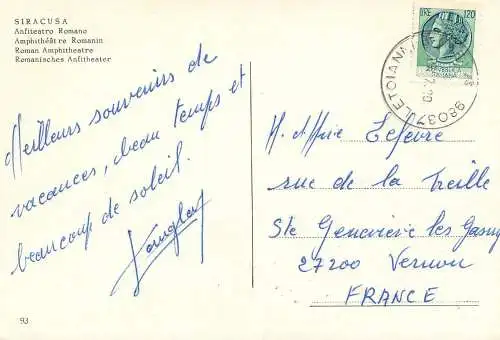 SIRACUSA
Anfiteatro Romano
Amphithéâtre Romanin
Roman Amphitheatre
Romanisches Anfiteater
LIRE 120
REPUBBLICA
ITALIANA
98037 LETOIANNI
Meilleurs souvenirs de
vacances, beau temps et
beaucoup de soleil.
M. et Mme Lefevre
rue de la Treille
Ste Geneviève les Gasny
27200 Vernon
FRANCE
93